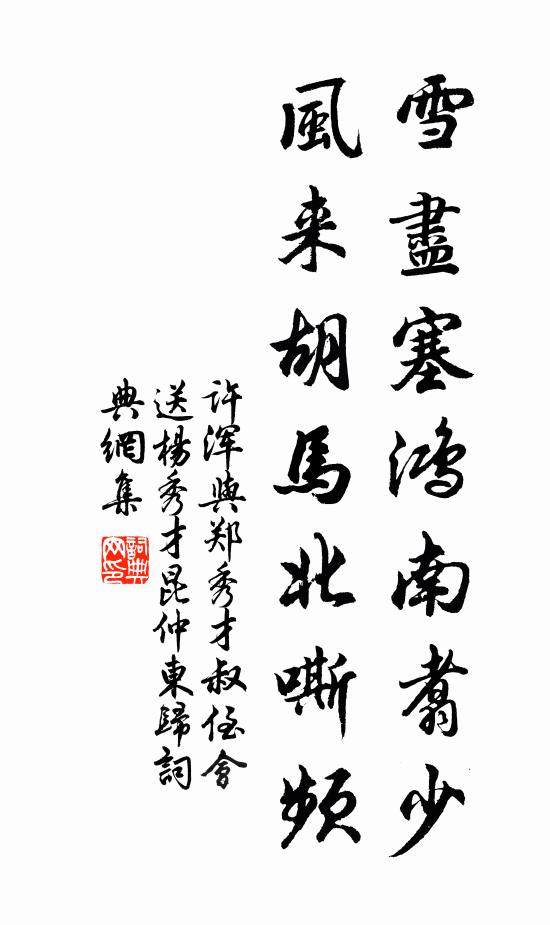 雪盡塞鴻南翥少
風来胡馬北嘶頻
許渾與郑秀才叔侄會
送楊秀才昆仲東歸詞
典網集
詞典
网印